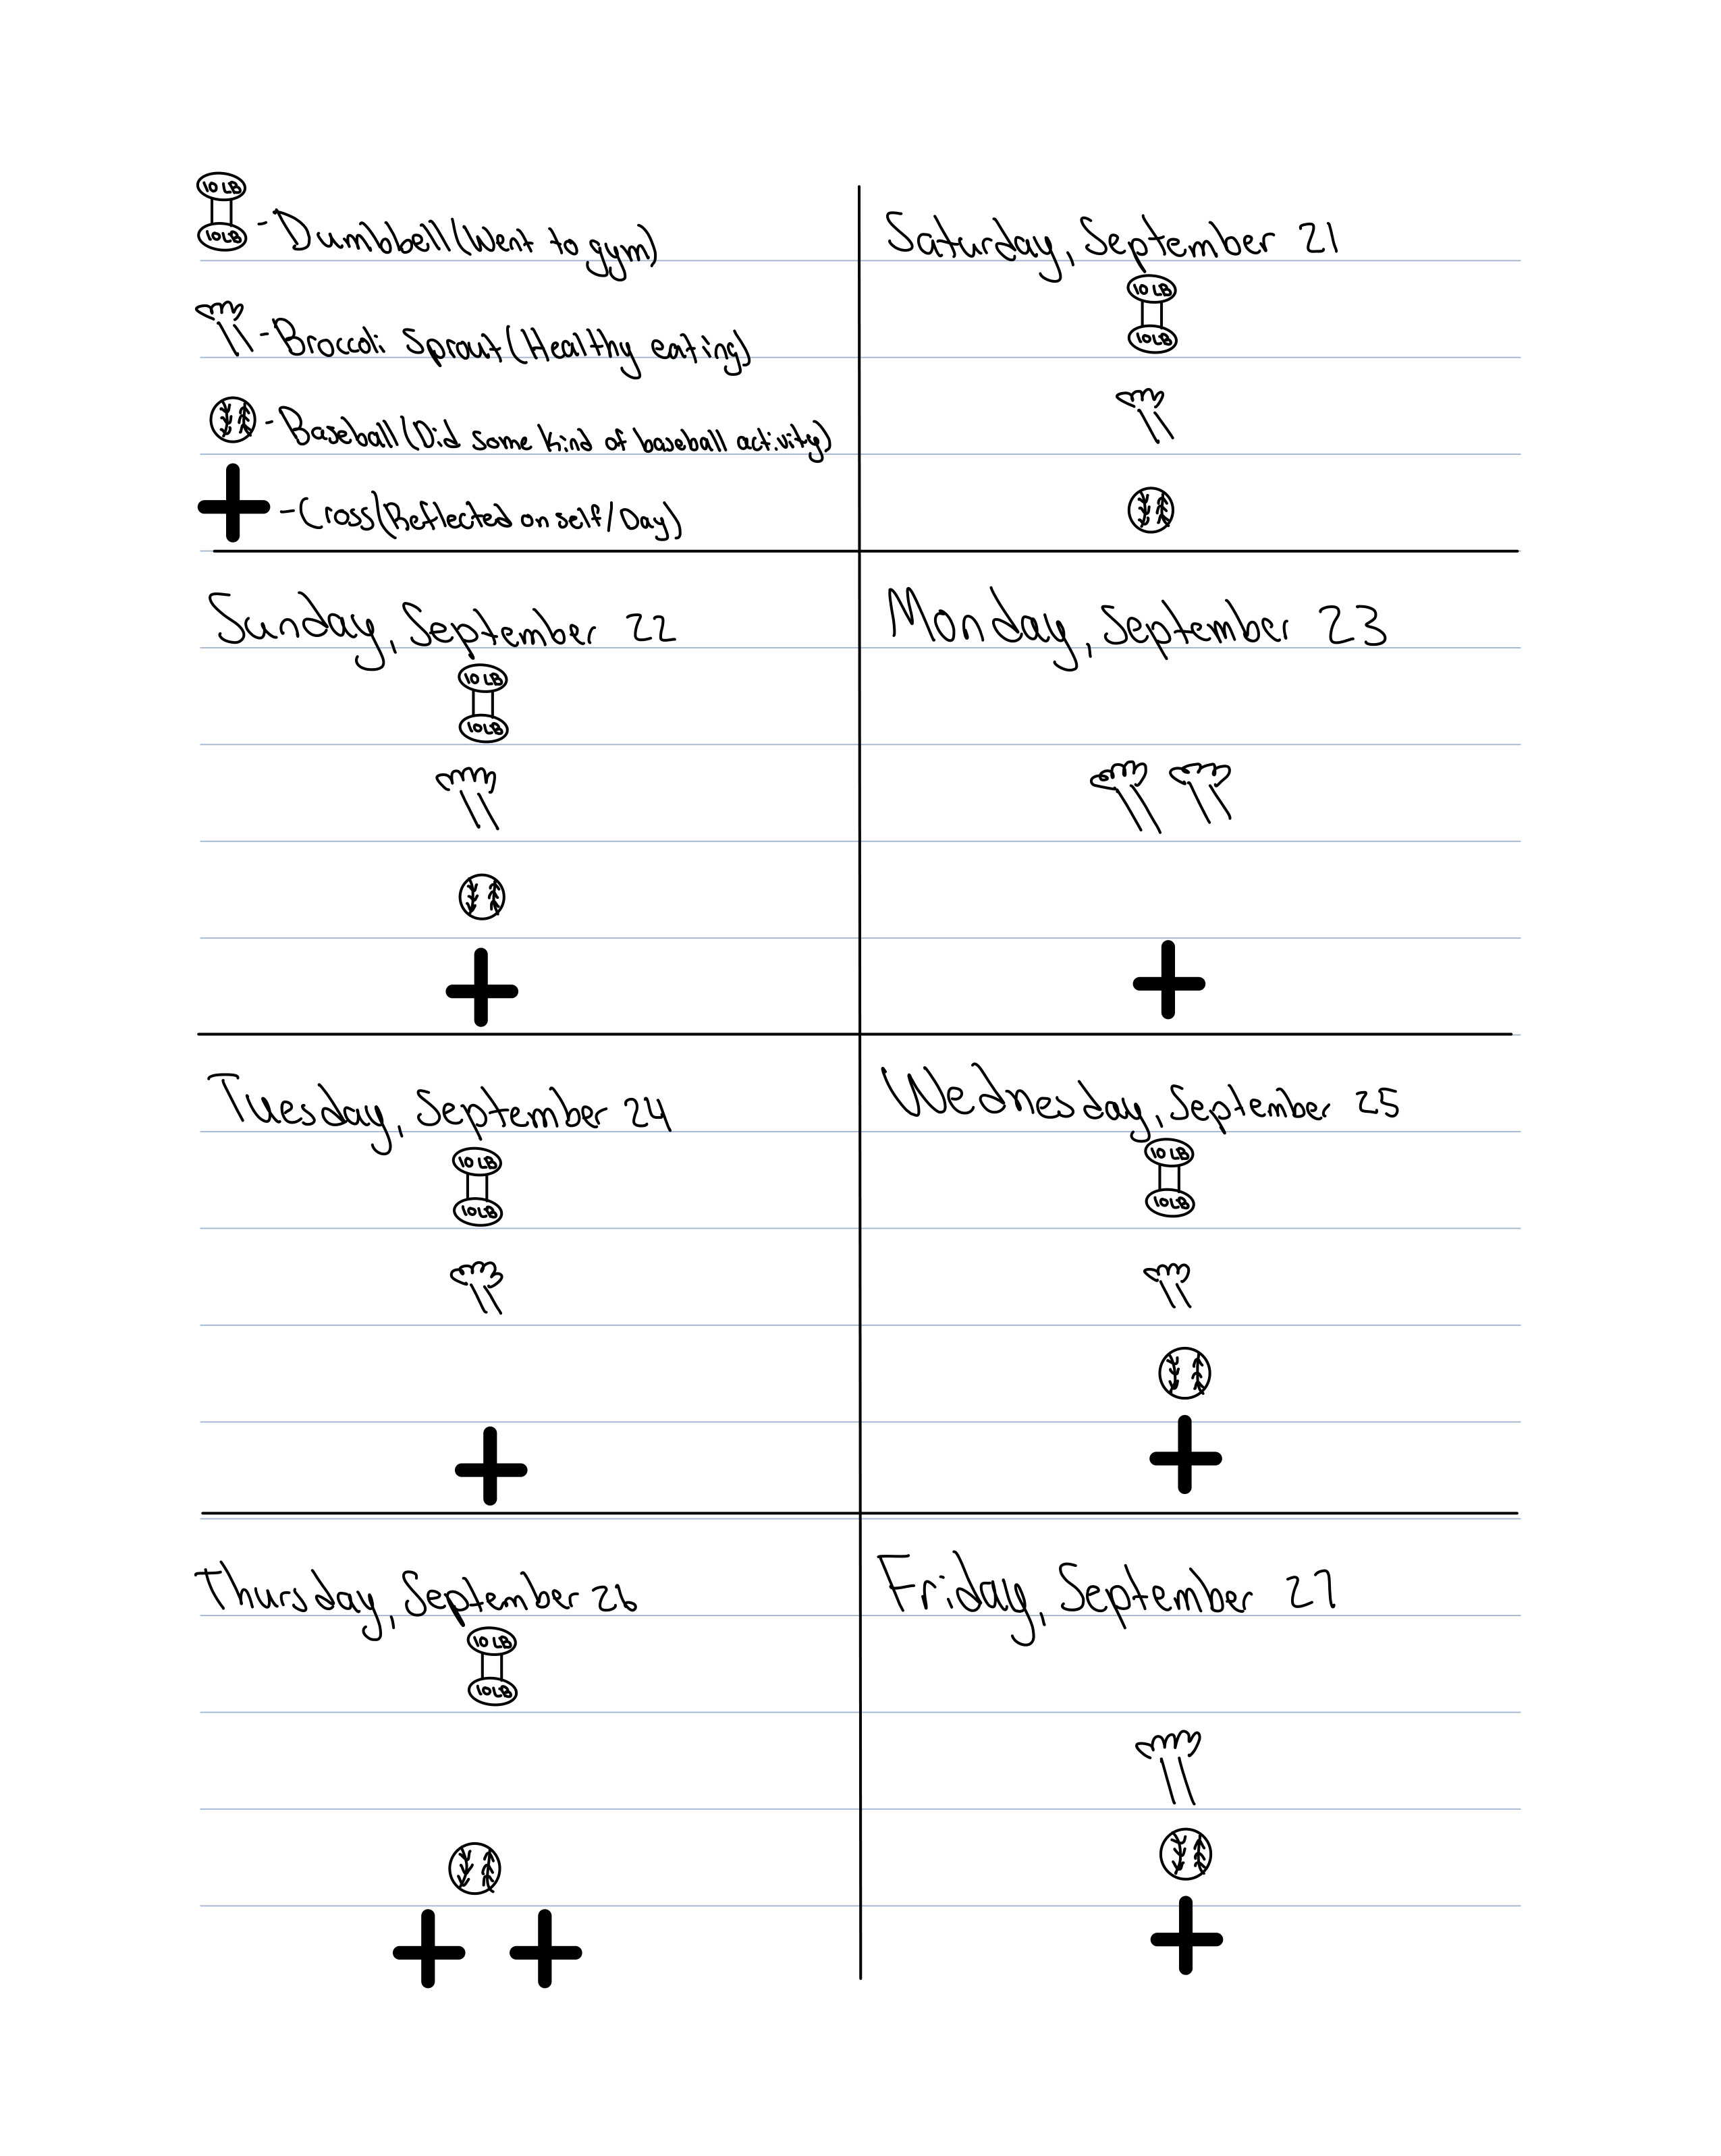 10 LB
10LB
-Dumbbell(Went to gym)
-Broccoli Sprout(Healthy eating)
-Baseball(Did some kind of baseball activity)
-Cross(Reflected on self/Day)
Saturday, September 21
10 LB
10LB
Sunday, September 22
10 LB
10LB
Monday, September 23
Tuesday, September 24
10 LB
10LB
Wednesday, September 25
10 LB
10LB
Thursday, September 26
10 LB
10LB
Friday, September 27